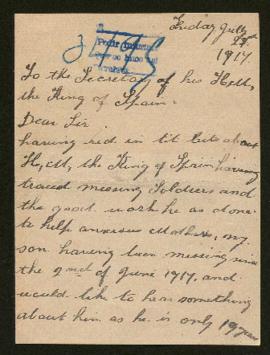 Friday July
1917.
To the Secretary of his H.M.
the King of Spain.
Dear Sir.
having red in tit bits about
H,M, the King of Spain having
traced missing Soldiers and
the good work he as done
to help anxious Mothers, my
son having been missing since
the 2nd of June 1917. and
would like to hear something
about him as he is only 19 years